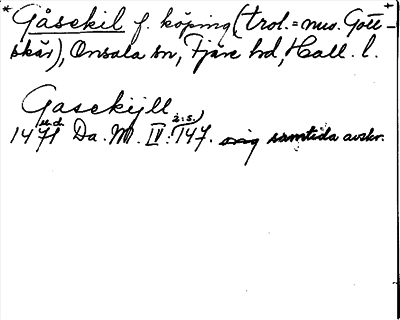 * Gåsekil f. köping (trol. = nuv. Gott- +
skär), Onsala sn, Fjäre hd, Hall. l.
Gasekijll
u.d. z.s.)
1471 Da. M. IV: 147. orig samtida avskr.